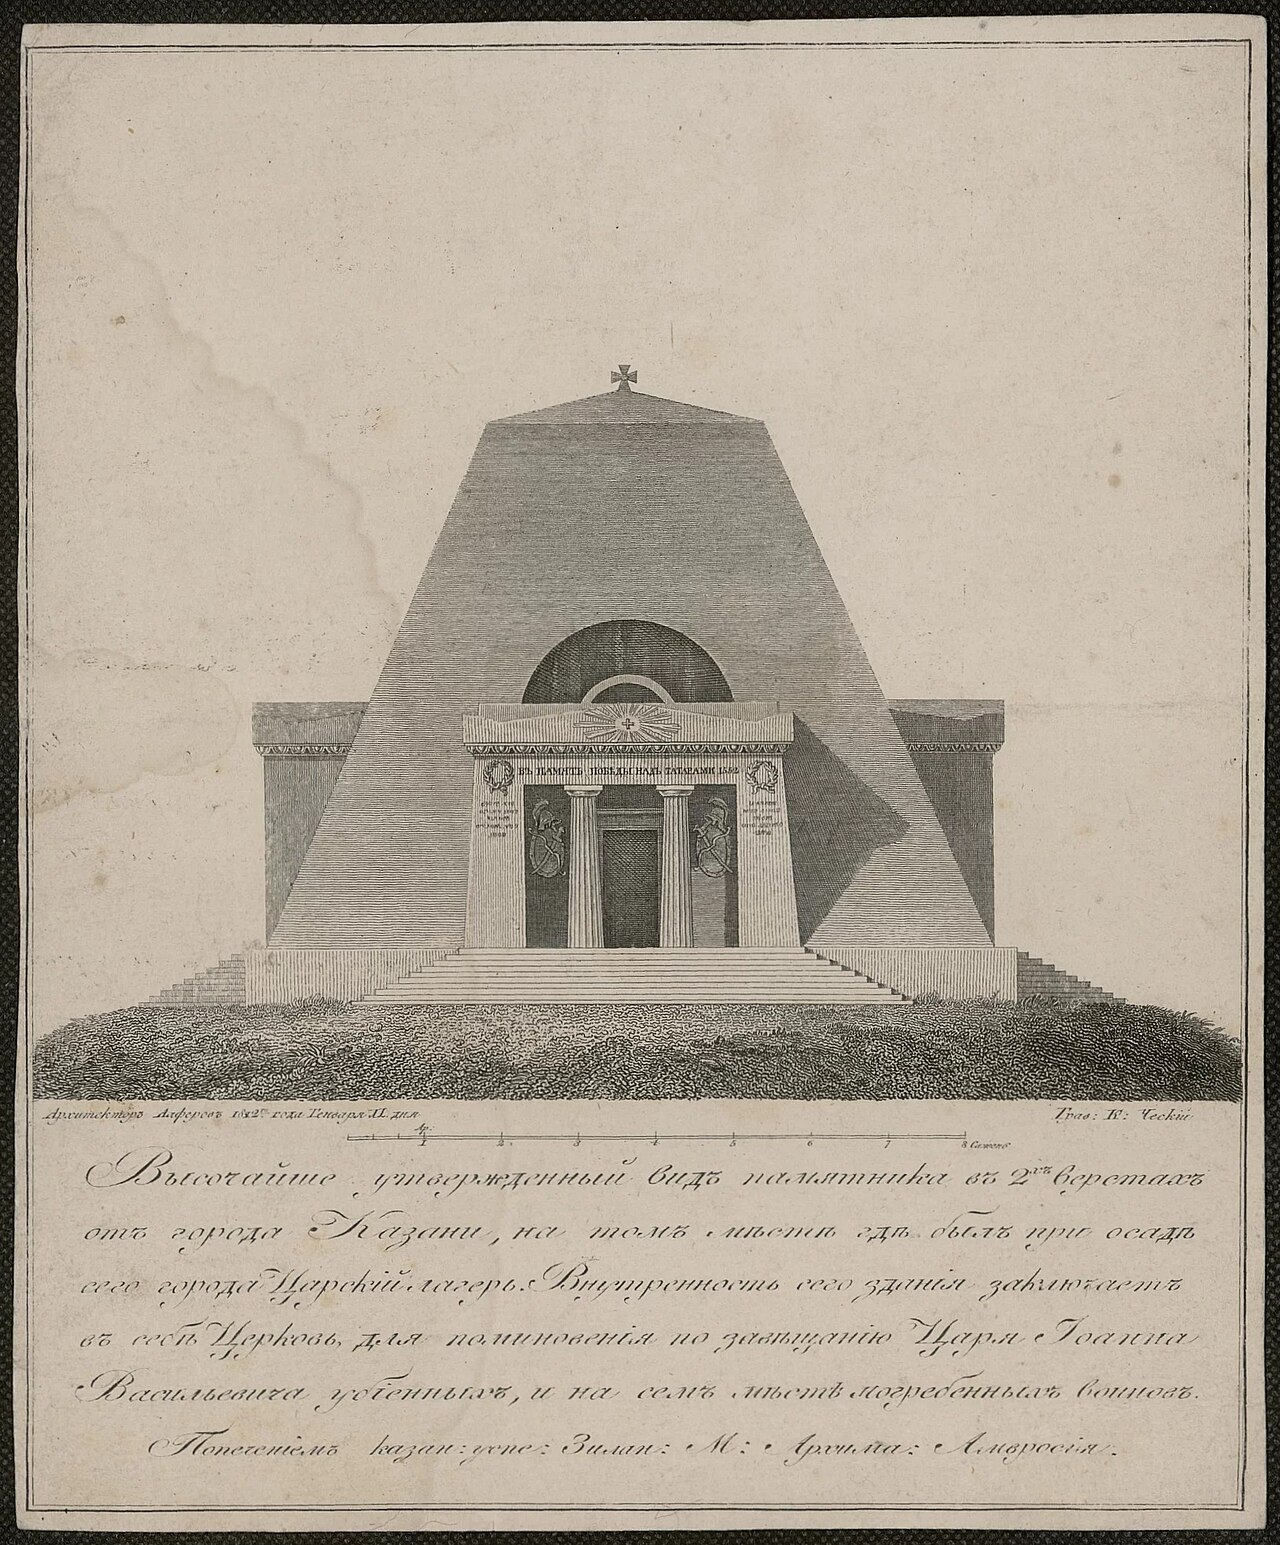 ВЪ ПАМЯТЬ ПОБѢДЫ НАДЪ ТАТАРАМИ 1552
Архитекторъ Алферовъ 1812го года Генваря 11 дня
Грав: К: Ческій
Ар:
1 2 3 4 5 6 7 8 Сажень
Высочайше утвержденный видъ памятника въ 2хъ верстахъ
отъ города Казани, на томъ мѣстѣ гдѣ былъ при осадѣ
сего города Царскій лагерь. Внутренность сего зданія заключаетъ
въ себѣ Церковь, для поминовенія по завѣщанію Царя Іоанна
Васильевича убіенныхъ, и на семъ мѣстѣ погребенныхъ воиновъ.
Попеченіемъ казан: успе: Зилан: М: Архима: Амвросія.